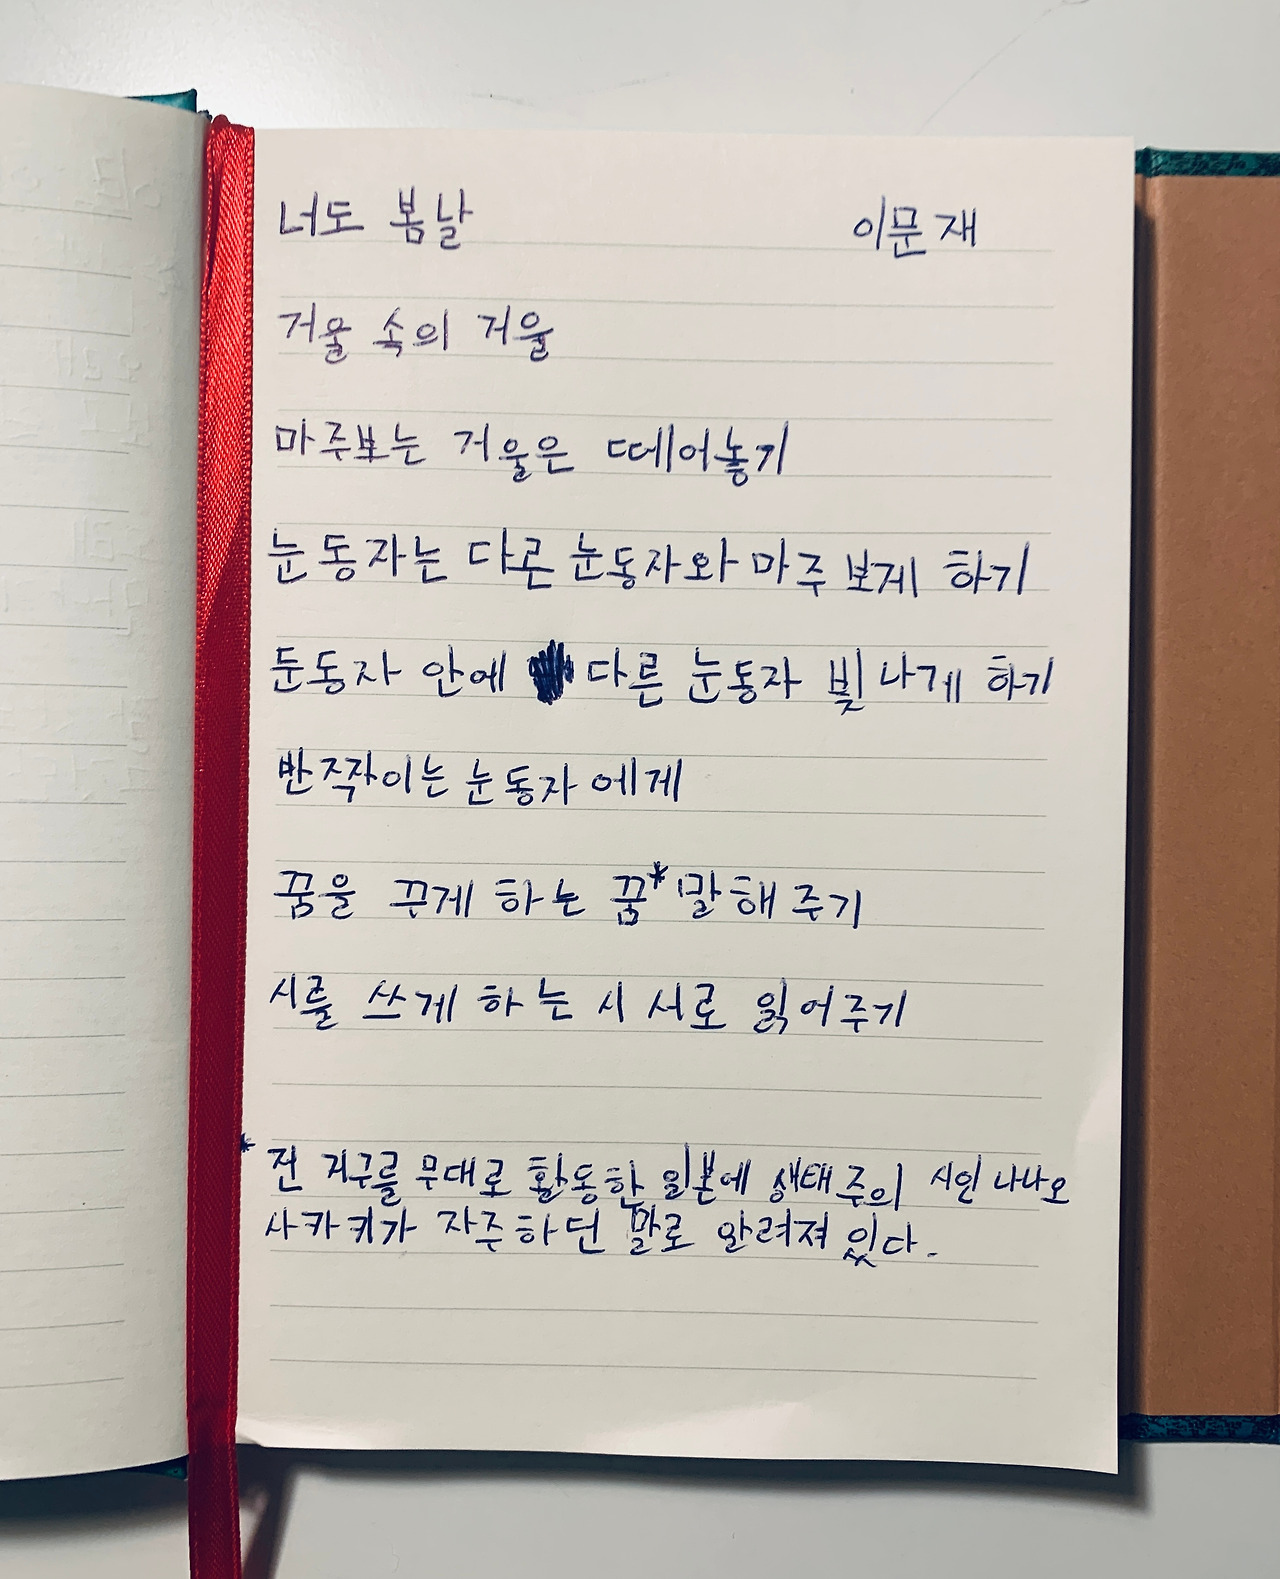 너도 봄날 이문재
거울 속의 거울
마주보는 거울은 떼어놓기
눈동자는 다른 눈동자와 마주 보게 하기
눈동자 안에 다른 눈동자 빛나게 하기
반짝이는 눈동자에게
꿈을 꾸게 하는 꿈* 말해 주기
시를 쓰게 하는 시 서로 읽어주기
* 전 지구를 무대로 활동한 일본에 생태주의 시인 나나오
사카키가 자주하던 말로 알려져 있다.